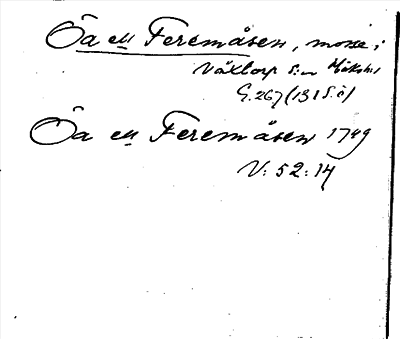 Öa ell Feremåsen, mosse i
Växtorp s:n Höks hd
G. 267 (131 S. ö)
Öa ell Feremåsen 1749
V: 52:14